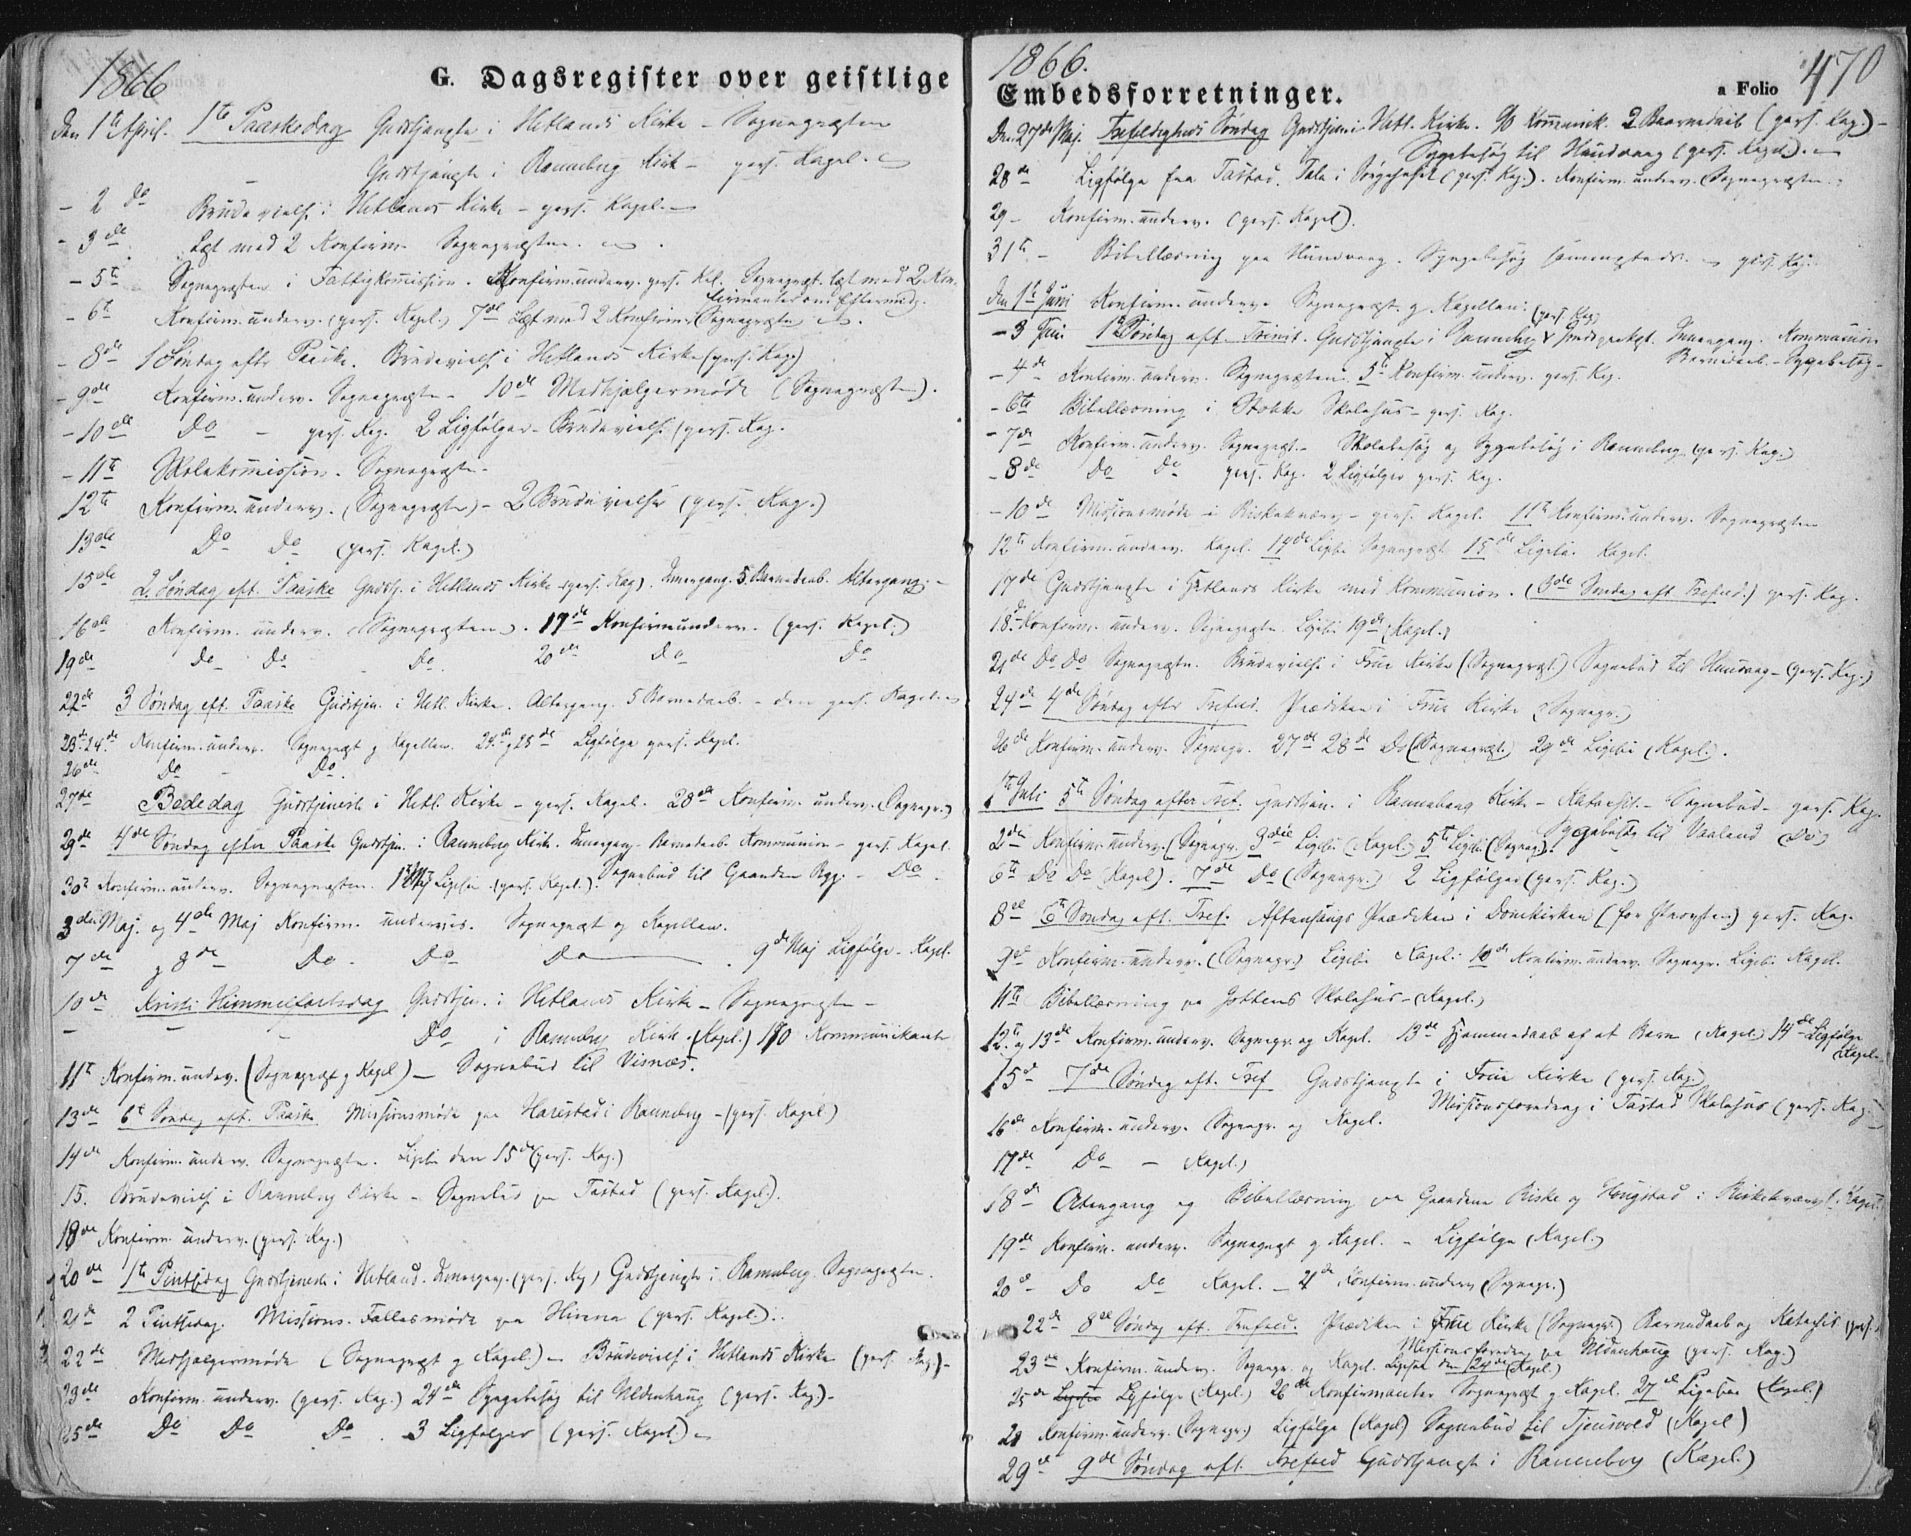 1866
G. Dagsregister over geistlige
Den 1te April. 1te Paaskedag Gudstjeneste i Hetlands Kirke - Sognepræsten
- Gudstjeneste i Randeberg Kirke - pers. Kapel.
- 2 Do Brudevielse i Hetlands Kirke - pers. Kapel.
- 3de Læst med 2 Konfirm. Sognepræsten.
- 5te Sognepræsten i Fattigkomission. Konfirm. underv. pers. Kpl. Sognepræst. læst med 2 Kon-
firmanter om Eftermidg.
- 6te Konfirm. underv. (pers. Kapel.) 7de Læst med 2 Konfirm. (Sognepræsten)
- 8de 1 Søndag efter Paaske. Brudevielse i Hetlands Kirke (pers. Kap.)
- 9de Konfirm. underv. Sognepræsten - 10de Medhjælpermøde (Sognepræsten).
- 10de Do - pers. Kap. 2 Ligfølger - Brudevielse (pers. Kap.
- 11te Skolekomission. Sognepræsten -
12te Konfirm. underv. (Sognepræsten) - 2 Brudevielser (pers. Kap.)
13de Do Do (pers. Kapel.)
15de 2. Søndag eft. Paaske Gudstj. i Hetlands Kirke (pers. Kap). Inngang. 5. Barnedaab. Altergang. -
16de Konfirm. underv. (Sognepræsten). 17de Konfirm. underv. (pers. Kapel.)
19de Do Do Do 20de Do Do
22de 3 Søndag eft. Paaske Gudstjen. i Hetl. Kirke. Altergang. 5 Barnedaab. - den pers. Kapel.
23de 24de Konfirm. underv. Sognepræst og Kapellan. 24de og 25de Ligfølge pers. Kapel.
26de Do - Do.
27de Bededag Gudstjeneste i Hetl. Kirke - pers. Kapel. 28de Konfirm. underv. (Sognepr.)
29de 4de Søndag efter Paaske Gudstjen. i Randeberg Kirke. Inngang - Barnedaab. Kommunion - pers. Kapel.
30te Konfirm. underv. Sognepræsten. 1 Maj (pers. Kapel.) Sognebud til Gaanden - Do -
3die Maj. og 4de Maj Konfirm. undervis. Sognepræst og Kapellan.
7de og 8de Do. Do Do . 9de Maj Ligfølge - Kapel.
10de Kristi Himmelfartsdag Gudstjen. i Hetlands Kirke - Sognepræsten -
- - - Do i Randeberg Kirke. (Kapel.) 110 Kommunikanter
11te Konfirm. underv. (Sognepræst og Kapel) - Sognebud til Visnæs.
13de 6te Søndag eft. Paaske Missionsmøde paa Harestad i Randeberg - (pers. Kapel)
14de Konfirm. underv. Sognepræsten. den 15de (pers. Kap.)
15. Brudevielse i Randeberg Kirke - Sognebud paa Tasted (pers. Kapel).
18de Konfirm. underv. (pers. Kap.)
20de 1te Pintsedag Gudstjeneste i Hetland. Inngang. (pers. Kap) Gudstjeneste i Randeberg. Sognepræsten.
21de 2 Pintsedag. Missions-Fællesmøde paa Hinna (pers. Kapel.).
22de Medhjælpermøde (Sognepræst og Kapel.) - Brudevielse i Hetlands Kirke (pers. Kap.) -
23de Konfirm. underv. (pers. Kap.) 24de Sygebesøg til Uldenhaug (pers. Kap) -
25de Do Do Do . 3 Ligfølger (pers. Kapel.) -
1866.
Embedsforretninger.
a Folio 470
Den 27de Maj. Trefoldigheds Søndag Gudstjen. i Hetl. Kirke. 90 Komunik. 2 Barnedaab (pers. Kap) -
Sygebesøg til Hundvaag (pers. Kapel). -
28de Ligfølge fra Tastad. Tale i Sørgehuset (pers. Kap.). Konfirm. underv. (Sognepræsten.
29 - Konfirm. underv. (pers. Kapel).
31te - Bibellæsning paa Hundvaag. Sygebesøg sammesteds. - pers. Kap.
Den 1te Juni Konfirm. underv. Sognepræst. og Kapellan. (pers. Kap)
- 3 Juni 1te Søndag eft. Trinit. Gudstjeneste i Randeberg Inngang. Kommunion
Barnedaab. - Sygebesøg -
- 4de Konfirm. underv. Sognepræsten. 5te Konfirm. underv. pers. Kap.
- 6te Bibellæsning i Stokke Skolehus - pers. Kap.
- 7de Konfirm. underv. Sognepræst. - Skolebesøg og Sygebesøg i Randeberg (pers. Kap.)
- 8de Do Do pers. Kap. 2 Ligfølger pers. Kap.
- 10de Missionsmøde i Riskekværv - pers. Kapel. 11te Konfirm. underv. Sognepræsten
12te Konfirm. underv. Kapel. 14de Sognepræst 15de Kapel.
17de Gudstjeneste i Hetlands Kirke med Kommunion. (3de Søndag eft. Trefold.) pers. Kap.
18de Konfirm. underv. Sognepræsten. 19de (Kapel.)
21de Do Do Sognepræsten. Brudevielse i Frue Kirke (Sognepræst.) Sognebud til Hundvaag - (pers. Kap.)
24de 4de Søndag efter Trefold. Prædiken i Frue Kirke (Sognepr.)
26de Konfirm. underv. Sognepr. 27de 28de Do (Sognepræst.) 29de (Kapel.).
1te Juli 5te Søndag efter Tref. Gudstjen. i Randeberg Kirke - Kateches. - Sognebud - pers. Kap.
Sygebesøg til Vaaland (Do)
2den Konfirm. underv. (Sognepr. 3die (Kapel.) 5te (Sognepr.).
6te Do Do (Kapel). 7de Do (Sognepr.) 2 Ligfølger (pers. Kap.)
8de 6te Søndag eft. Tref. Aftensangs Prædiken i Domkirken (for Provsten) pers. Kap.
9de Konfirm. underv. (Sognepr.) Kapel. 10de Konfirm. underv. Sognepr. Kapel.
11te Bibellæsning paa Jottens Skolehus - (Kapel.)
12te og 13de Konfirm. underv. Sognepr. og Kapel. 13de Hjemmedaab af et Barn (Kapel.) 14de Ligfølge
(Kapel.
15de 7de Søndag eft. Tref Gudstjeneste i Frue Kirke (pers. Kap)
Missionsforedrag i Tastad Skolehus (pers. Kap.
16de Konfirm. underv. Sognepr. og Kapel.
17de Do - Kapel.)
18de Omgang og Bibellæsning paa Gaardene Riske og Haugstad i Riskekværv. Kapel.
19de Konfirm. underv. Sognepræst og Kapel. - Ligfølge (Kapel.)
20de - Do Do Kapel. - 21de Konfirm. underv. (Sognepr.)
22de 8de Søndag eft. Trefold. Prædiken i Frue Kirke (Sognepr.) Barnedaab og Kateches. (pers.
Missionsforedrag paa Uldenhaug (pers. Kap.)
23de Konfirm. underv. Sognepr. og Kapel. den 24de (Kapel.)
25de Ligfølge (Kapel.) 26de Konfirmanter Sognepræst og Kapel. 27de (Kapel.)
28 Konfirm. underv. (Sognepr.) Ligfølge (Kapel) Sognebud til Tjensvold (Kapel)
29de 9de Søndag eft. Trefold Gudstjeneste i Randeberg (Kapel.)